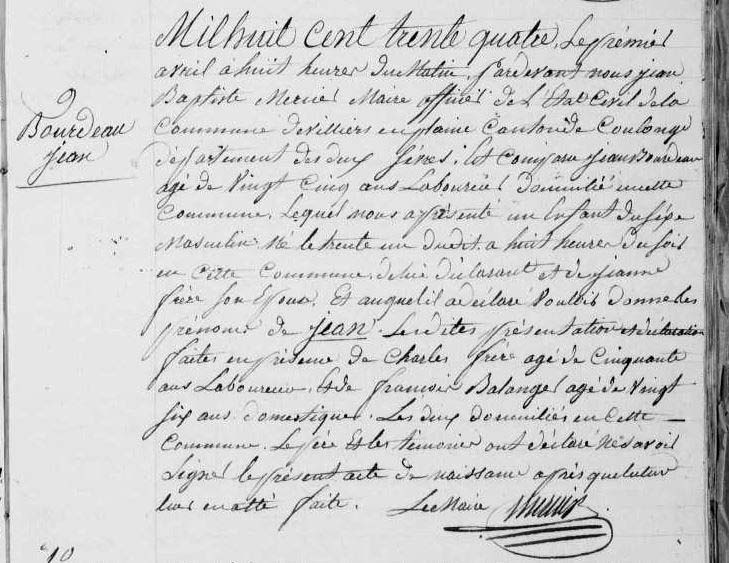 9
Bourdeau
jean
Mil huit cent trente quatre, Le premier
avril à huit heures du Matin, pardevant nous jean
Baptiste Mercier Maire officier de L'état Civil de la
Commune de villiers en plaine Canton de Coulonge
département des deux Sèvres; Est Comparu jean Bourdeau
agé de Vingt Cinq ans Laboureur Domicilié en cette
Commune, Lequel nous a présenté un Enfant du Sexe
Masculin Né le trente un dudit à huit heures du soir
en Cette Commune, de lui déclarant et de jeanne
frère son Epouse, Et auquel il a déclaré Vouloir donner les
prénoms de jean. Lesdites présentation et déclaration
faites en présence de Charles frère agé de Cinquante
ans Laboureur, Et de francois Balanger agé de Vingt
six ans domestique, Les deux domiciliés en Cette
Commune, Le père Et les témoins ont déclaré Ne savoir
signer le présent acte de naissance après que lecture
leur en a été faite. Le Maire
10